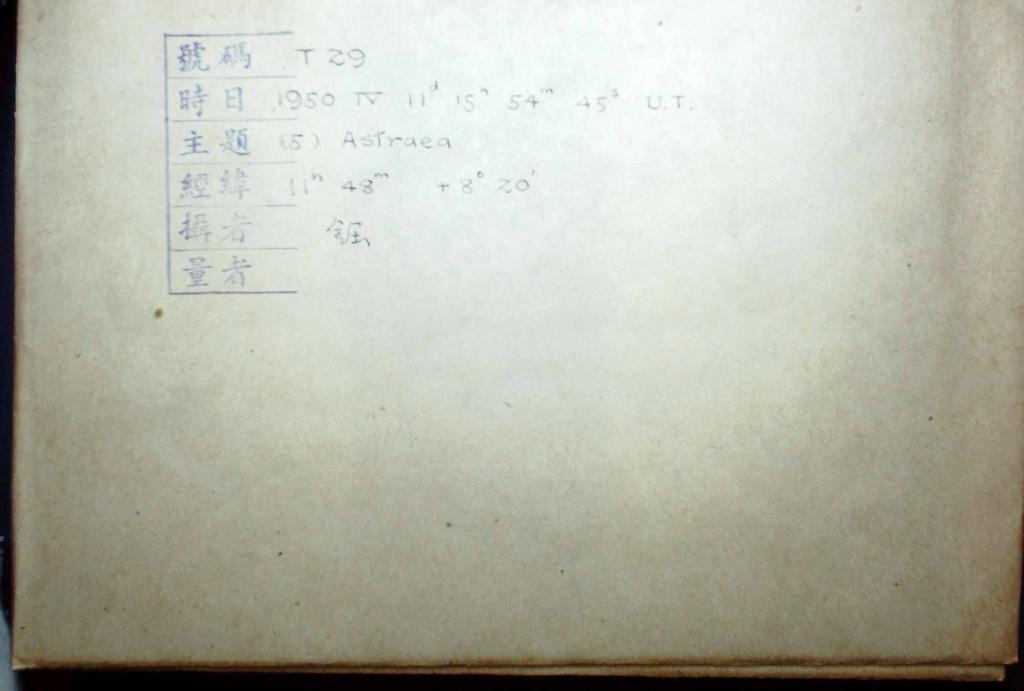 號碼 T 29
時日 1950 IV 11ᵈ 15ʰ 54ᵐ 45ˢ U.T.
主題 (5) Astraea
經緯 11ʰ 48ᵐ +8° 20'
攝者
量者